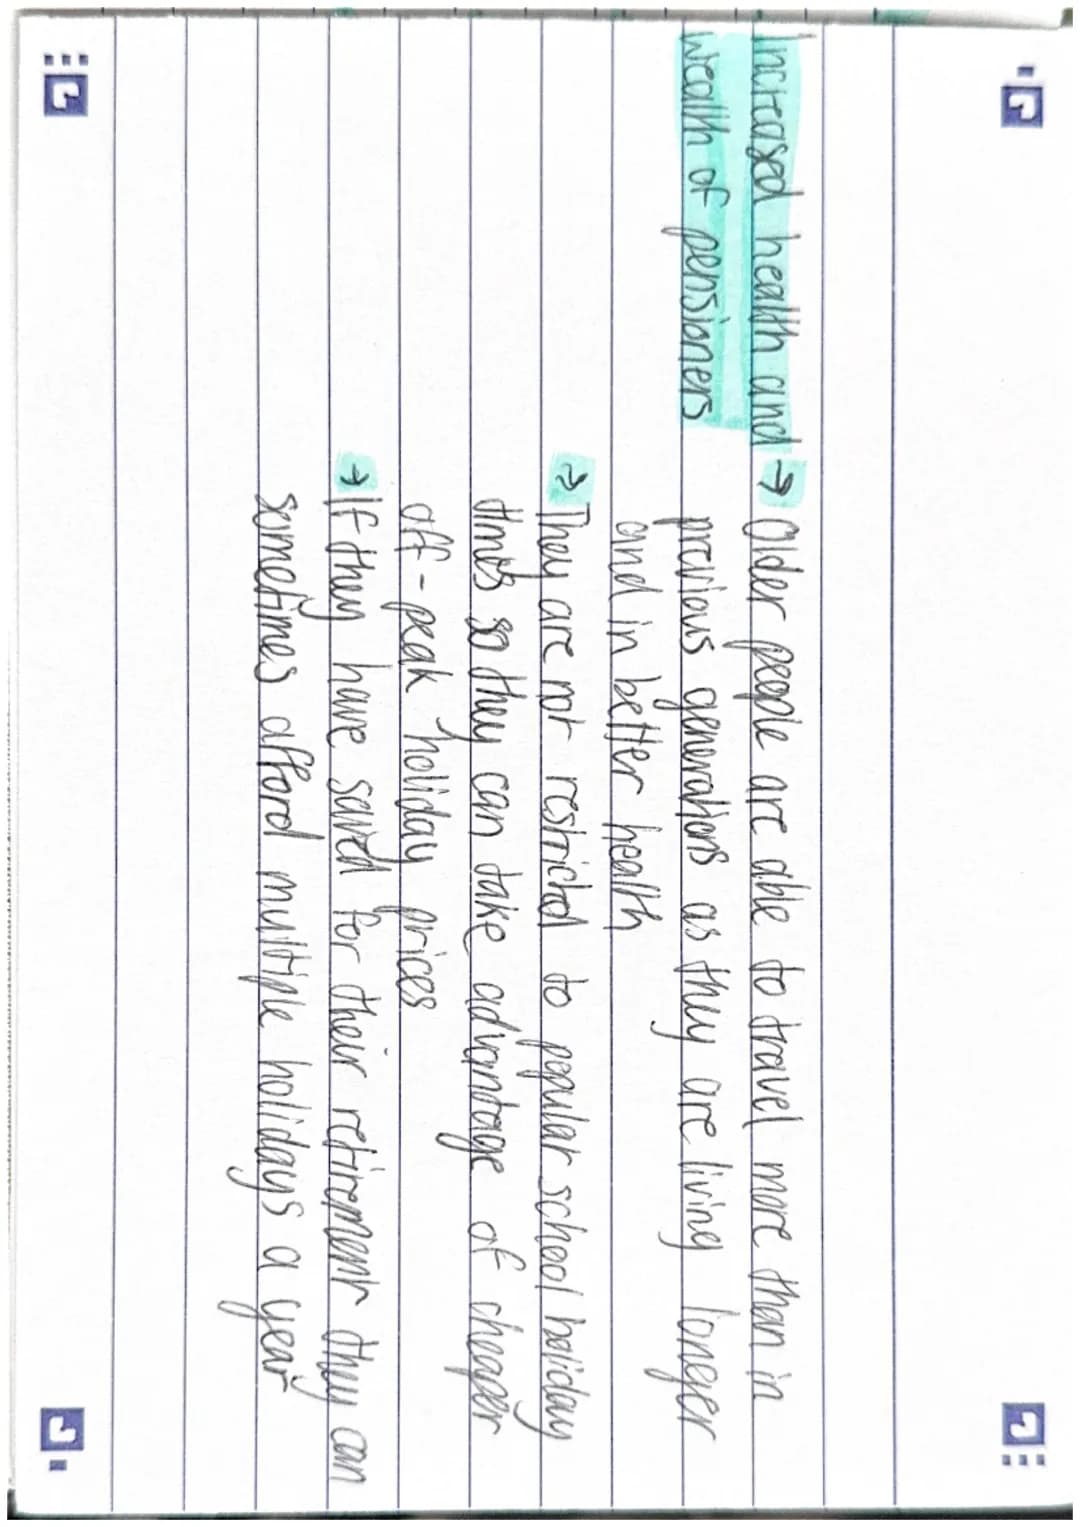 Increased health and → Older people are able to travel more than in
wealth of pensioners previous generations as they are living longer
and in better health
→ They are not restricted to popular school holiday
times so they can take advantage of cheaper
off-peak holiday prices
→ If they have saved for their retirement they can
sometimes afford multiple holidays a year